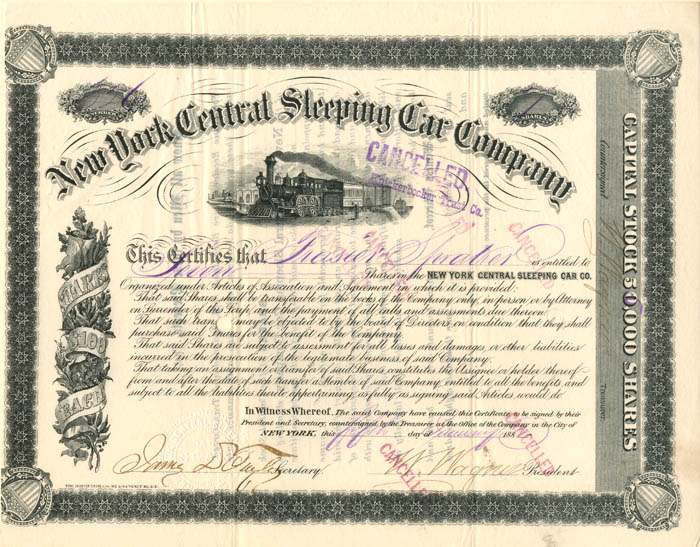 NUMBER
SHARES
New York Central Sleeping Car Company
CANCELLED
Knickerbocker Trust Co.
CANCELLED
CANCELLED
This Certifies that Frasier Spratley is entitled to
Shares in the NEW YORK CENTRAL SLEEPING CAR CO.
Organized under Articles of Association and Agreement in which it is provided:
That said Shares shall be transferable on the books of the Company only, in person or by Attorney
on Surrender of this Scrip, and the payment of all calls and assessments due thereon.
That such tran may be objected to by the board of Directors on condition that they shall
purchase said Shares for the benefit of the Company.
That said Shares are subject to assessment for all losses and damages, or other liabilities
incurred in the prosecution of the legitimate business of said Company.
That taking an assignment or transfer of said Shares constitutes the Assignee or holder thereof
from and after the date of such transfer a Member of said Company, entitled to all the benefits and
subject to all the liabilities thereto appertaining, as fully as signing said Articles would do.
In Witness Whereof, The said Company have caused this Certificate to be signed by their
President and Secretary, countersigned by the Treasurer at the Office of the Company in the City of
NEW YORK, this day of 188
Secretary.
President
CANCELLED
CANCELLED
SHARES
$100
EACH
Countersigned
Treasurer
CAPITAL STOCK 50,000 SHARES